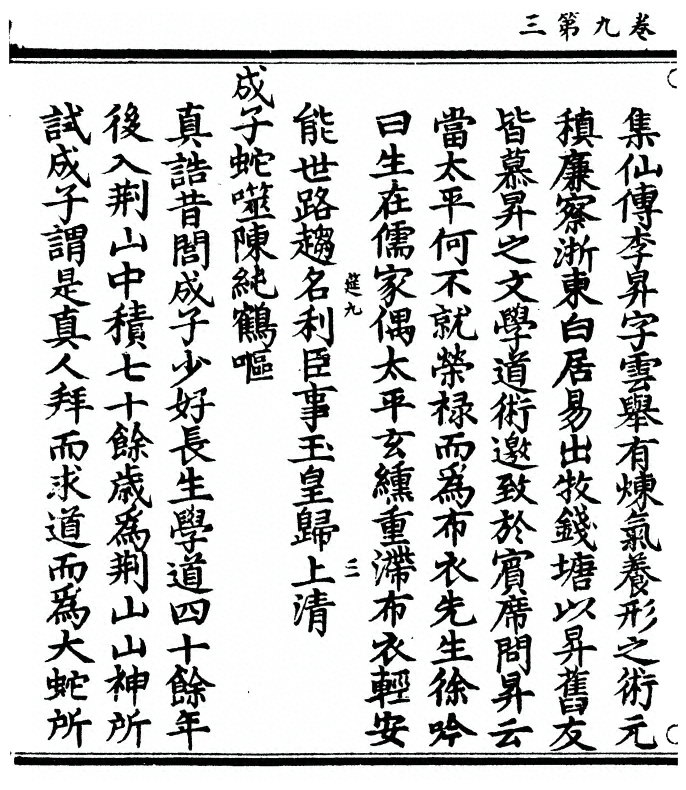 三第九卷
集仙傳李昇字雲舉有煉氣養形之術元
稹廉察浙東白居易出牧錢塘以昇舊友
皆慕昇之文學道術邀致於賓席問昇云
當太平何不就榮祿而為布衣先生徐吟
曰生在儒家偶太平玄纁重滯布衣輕安
筵九 三
能世路趨名利臣事玉皇歸上清
成子蛇噬陳純鶴嘔
真誥昔閻成子少好長生學道四十餘年
後入荆山中積七十餘歲為荆山山神所
試成子謂是真人拜而求道而為大蛇所